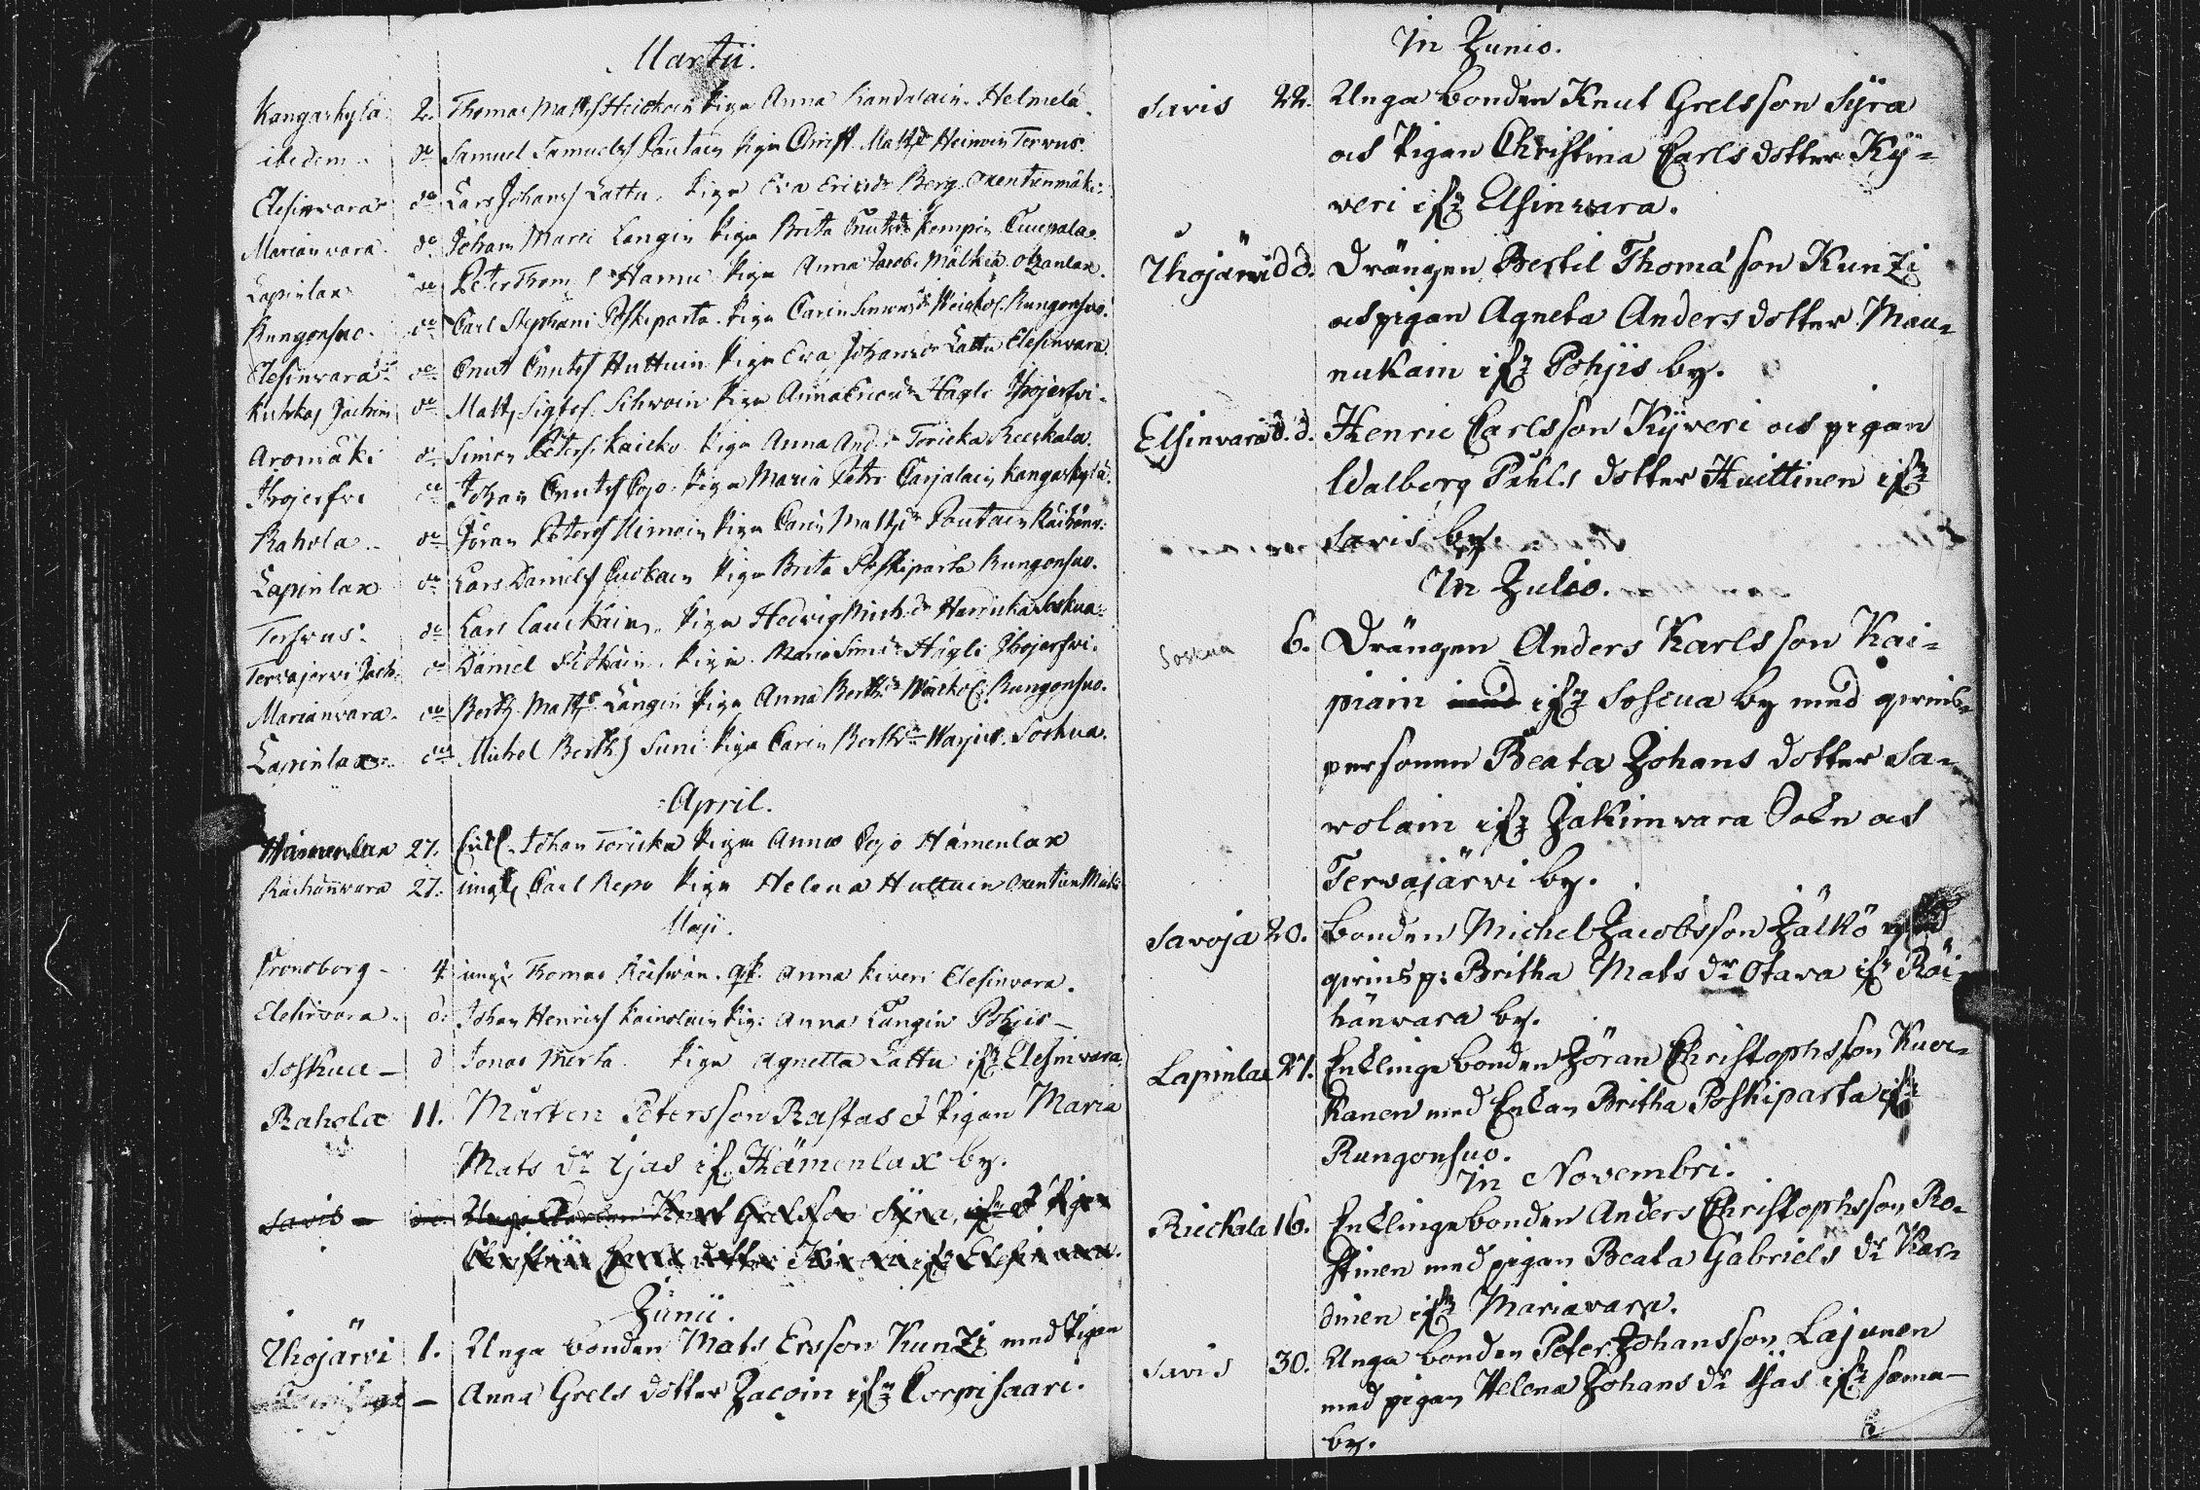 Martii.
Kangaskylä 2. Thomas Matts Heickain Piga Anna Kandalain Helmelä
ibidem do Samuel Samuels Pautain Piga Christ. Matts dr Heinoin Terwus
Elesinvara do Lars Johans Lattu. Piga Eva Erics dr Berg Oxentienmäki
Marianvara do Johan Marci Langin Piga Brita Cnuts dr Kempin Cuupala
Lapinlax do Peter Thom. Hannu Piga Anna Jacobs Mälkiä
Rungonsuo do Carl Stephani Påskiparta Piga Carin Rungonsuo
Elesinvara do Cnut Cnuts Huttuin Piga Eva Johans dr Lattu Elesinvara
do Matts Sigfr. Ihojerfvi
Aromäki do Simon Peters Kaicko Piga Anna And. dr Toricka Rieckala
Ihojerfvi do Johan Cnuts Pojo Piga Maria Petri Carjalain Kangaskylä
Rahola do Jöran Peters Piga Carin Matts dr Pautain
Lapinlax do Lars Daniels Cuokain Piga Brita Påskiparta Rungonsuo.
Terfwus do Lars Lauckain Piga Hedvig Mich. dr Harricka Soskua
Tervajervi do Daniel Piga Maria Sims dr Hägli Ihojerfvi
Marianvara do Berth. Matts Langin Piga Anna Berth. dr Rungonsuo.
Lapinlax do Michel Berth. Suni Piga Carin Berth. dr Soskua.
April.
Hämenlax 27. Johan Toricka Piga Anna Pojo Hämenlax
Räihänvara 27. Carl Repo Piga Helena Huttuin
Maji.
Cronoborg 4 Thomas Anna Kiveri Elesinvara.
Elesinvara d. Johan Henrics Kainolain Pig: Anna Langin Pohjis
Soskua d Jonas Merta Piga Agnetta Lattu ifr. Elesinvara
Rahola 11. Mårten Petersson Rastas & Pigan Maria
Mats dr Ijas ifr. Hämenlax by.
Savis Knut Grelsson Syra, ifr. & Pigan
Christina Carls dotter ifr Elesinvara.
Junii.
Ihojärvi 1. Unga bonden Mats Ersson Kunzi med Pigan
Anna Grels dotter Jacoin ifr. Corpisaari.
In Junio.
Savis 22. Unga bonden Knut Grelsson Syra
och Pigan Christina Carls dotter Ky=
veri ifr. Elsinvara.
Ihojärvi d d. Drängen Bertil Thomasson Kunzi
och pigan Agneta Anders dotter Mau=
nukain ifr. Pohjis by.
Elsinvara d. d. Henric Carlsson Kyveri och pigan
Walborg Påhls dotter Huittinen ifr.
Savis by.
In Julio.
Soskua 6. Drängen Anders Karlsson Kai=
piain ifr. Soscua by med qvins=
personen Beata Johans dotter Sa=
volain ifr. Jakimvara Sokn och
Tervajärvi by.
Savoja 20. Bonden Michel Jacobsson Jälkö med
qvinsp: Britha Mats dr Otava ifr. Räi=
hänvara by.
Lapinlax 27. Enklinge bonden Jöran Christophsson Kuoc=
kanen med Enkan Britha Poskiparta ifr.
Rungonsuo.
In Novembri.
Rieckala 16. Enklinge bonden Anders Christophsson Ro=
stinen med pigan Beata Gabriels dr Kar=
dinen ifr. Mariavara.
Savis 30. Unga bonden Peter Johansson Lajunen
med pigan Helena Johans dr Ijäs ifr. sama
by.